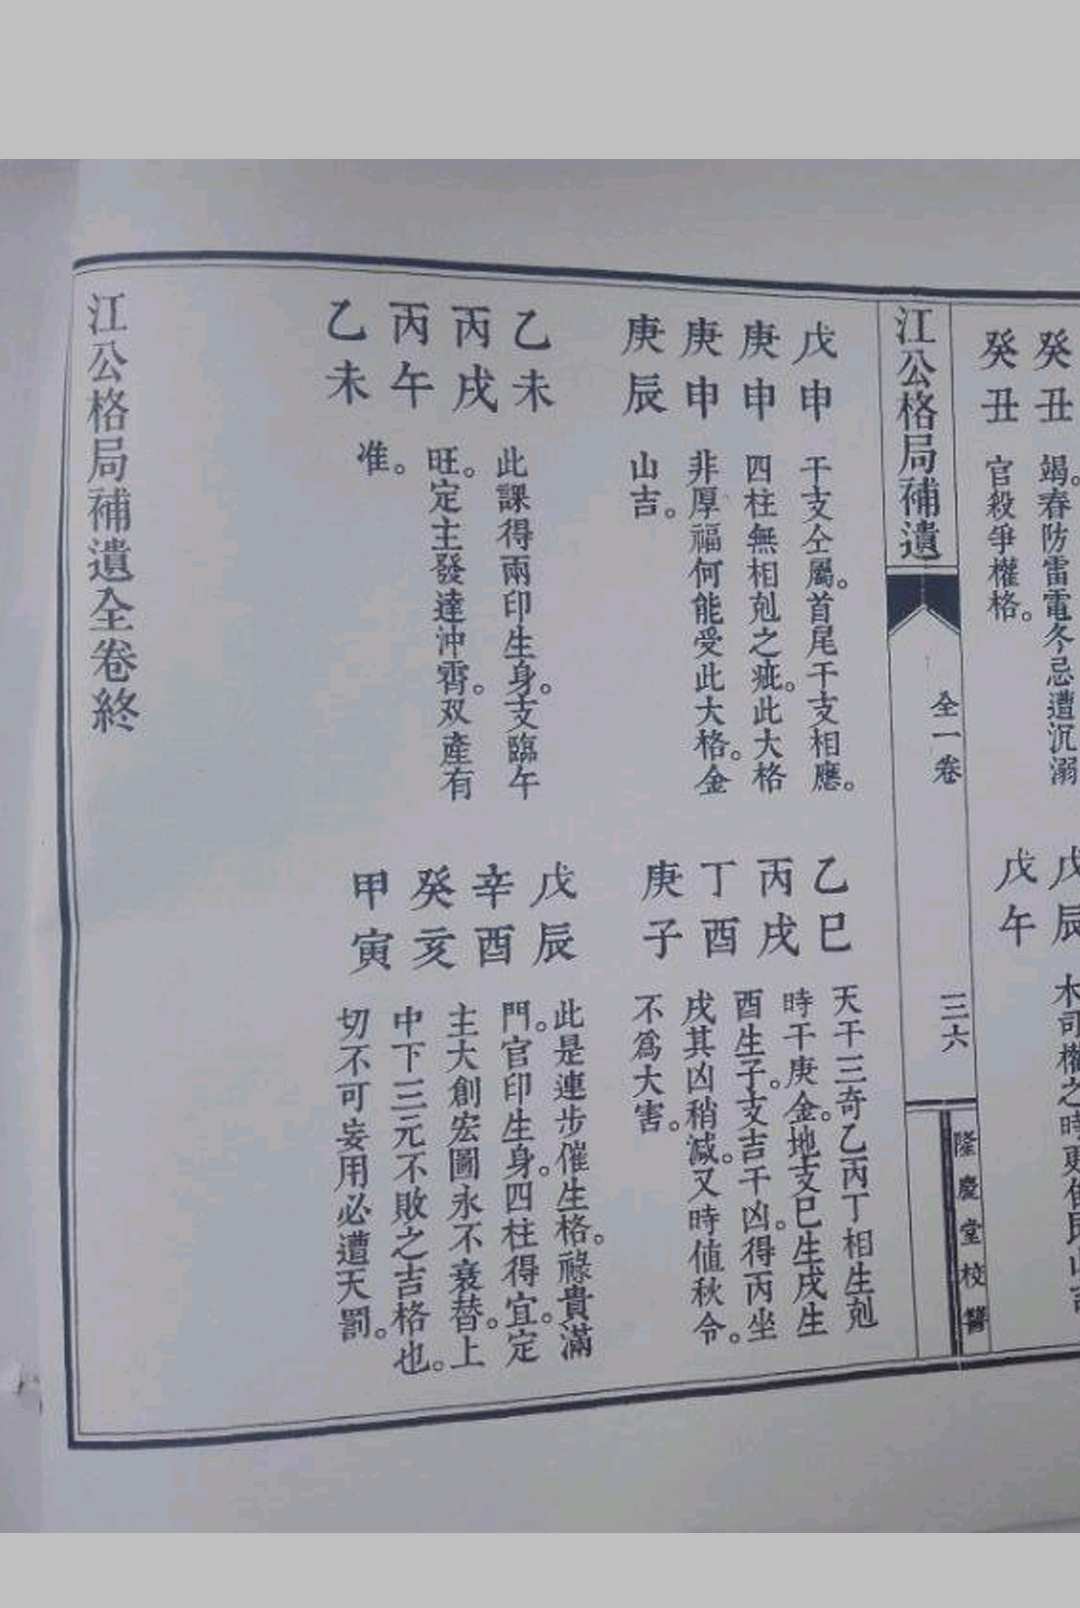 癸丑
癸丑
竭。春防雷電冬忌遭沉溺
官殺爭權格。
戊辰
戊午
木司權之時更
江公格局補遺
全一卷
三六
隆慶堂校讐
戊申
庚申
庚申
庚辰
干支仝屬。首尾干支相應。
四柱無相剋之疵。此大格
非厚福何能受此大格。金
山吉。
乙巳
丙戌
丁酉
庚子
天干三奇乙丙丁相生剋
時干庚金。地支巳生戌生
酉生子。支吉干凶。得丙坐
戌其凶稍減。又時值秋令。
不爲大害。
乙未
丙戌
丙午
乙未
此課得兩印生身。支臨午
旺。定主發達沖霄。双產有
准。
戊辰
辛酉
癸亥
甲寅
此是連步催生格。祿貴滿
門。官印生身。四柱得宜。定
主大創宏圖永不衰替。上
中下三元不敗之吉格也。
切不可妄用必遭天罰。
江公格局補遺全卷終